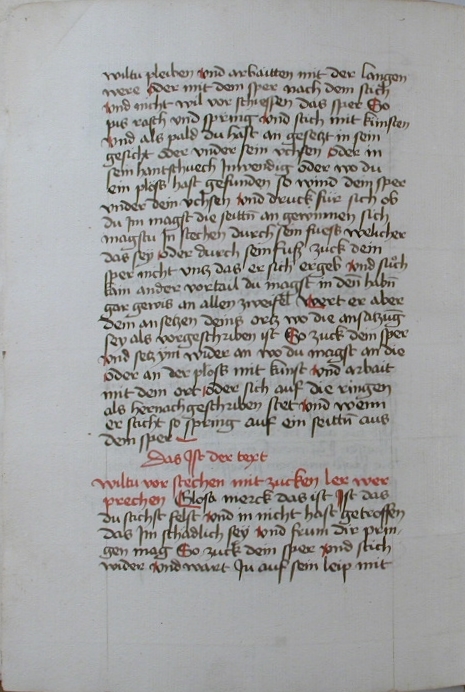 wiltu pleiben vnd arbaitten mit der langen
were oder mit dem sper nach dem stich
vnd nicht wil vor schiessen das sper So
pis rasch vnd spring vnd stich mit kunsten
vnd als pald du hast an gesetzt in sein
gesicht oder vnder sein vchsen oder in
sein hantschuech Inwendig oder wo du
ein ploss hast gefunden so wind dem sper
vnder dein vchsen vnd druck für sich ob
du im magst die seittñ an gewinnen sich
magstu In stechen durch sein fuess welicher
das sey oder durch sein Fuß zuck dein
sper nicht vnz das er sich ergeb vnd such
kain ander vortail du magst in den habñ
gar gewis an allen zweifel Wert er aber
dem ansetzen deins ortz wo die ansatzũg
sey als vorgeschriben ist So zuck dem sper
vnd setz ym wider an wo du magst an die
oder an der ploss mit kunst vnd arbait
mit dem ort oder sich auf die ringen
als hernachgeschriben stet vnd wenn
er sticht so spring auf ein seittñ aus
dem sper
Das Ist der text
wiltu vor stechen mit zucken ler wer
prechen Glosa merck das ist Ist das
du stichst felst vnd in nicht hast getroffen
das Im schadlich sey vnd frum dir prin
gen mag So zuck dem sper vnd stich
wider vnd wart Ju auf sein leip mit